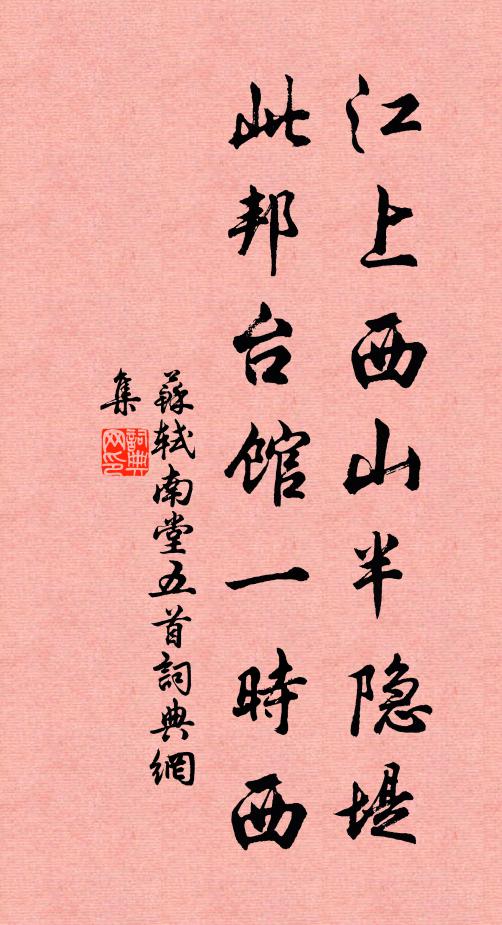 江上西山半隐堤
此邦台馆一時西
蘇轼南堂五首詞典網
集
詞典網印